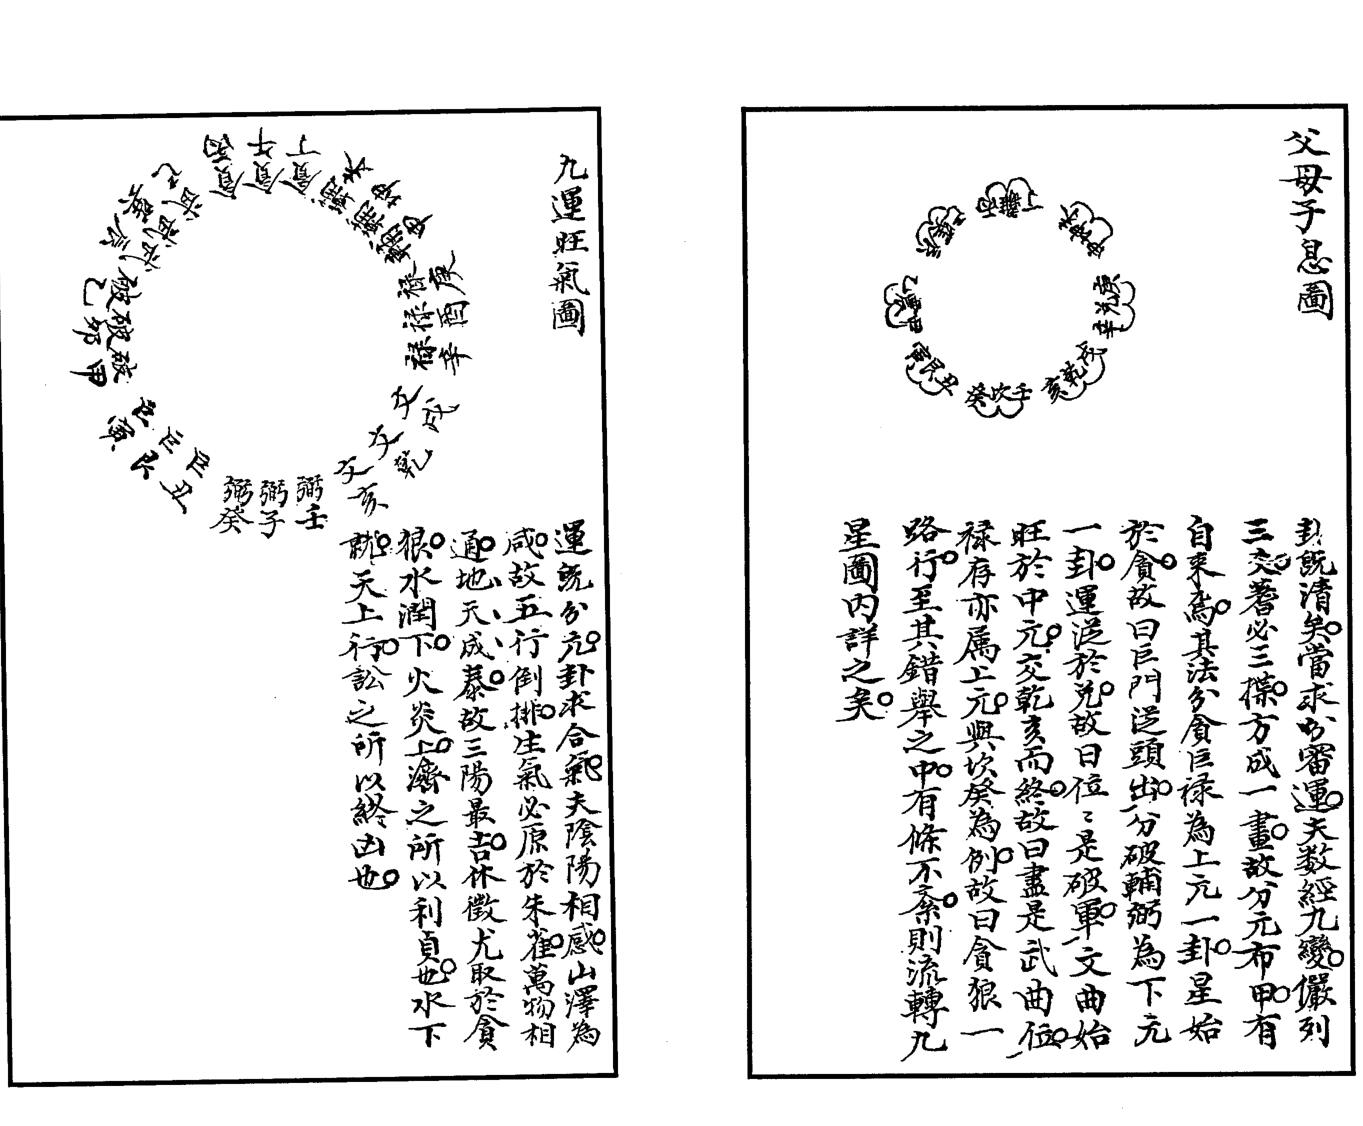 父母子息圖
丁離丙
未坤申
庚兌辛
戌乾亥
壬坎癸
丑艮寅
甲震乙
辰巽巳
卦既清矣當求分審運夫数經九變儼列
三交蓍必三揲方成一畫故分元布甲有
自來焉其法分貪巨祿為上元一卦星始
於貪故曰巨門從頭出分破輔弼為下元
一卦運從於兌故曰位〻是破軍文曲始
旺於中元交乾亥而終故曰盡是武曲位
祿存亦屬上元與坎癸為例故曰貪狼一
路行至其錯舉之中有條不紊則流轉九
星圖內詳之矣
九運旺氣圖
丙午丁
貪貪貪
未坤申
輔輔輔
庚酉辛
祿祿祿
戌乾亥
文文文
壬子癸
弼弼弼
丑艮寅
巨巨巨
甲卯乙
破破破
辰巽巳
武武武
運既分元卦求合氣夫陰陽相感山澤為
咸故五行倒排生氣必原於朱雀萬物相
通地天成泰故三陽最吉休徵尤取於貪
狼水潤下火炎上濟之所以利貞也水下
就天上行訟之所以終凶也